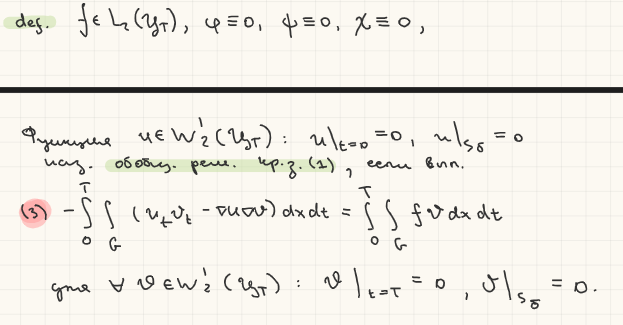 def. f ∈ L₂(Ц_T), φ ≡ 0, ψ ≡ 0, χ ≡ 0,
Функция u ∈ W₂¹(Ц_T) : u|_{t=0} = 0, u|_{S_б} = 0
наз. обобщ. реш. кр.з. (1), если вып.
(3) -∫₀ᵀ ∫_G (u_t v_t - ∇u∇v) dx dt = ∫₀ᵀ ∫_G f v dx dt
для ∀ v ∈ W₂¹(Ц_T) : v|_{t=T} = 0, v|_{S_б} = 0.